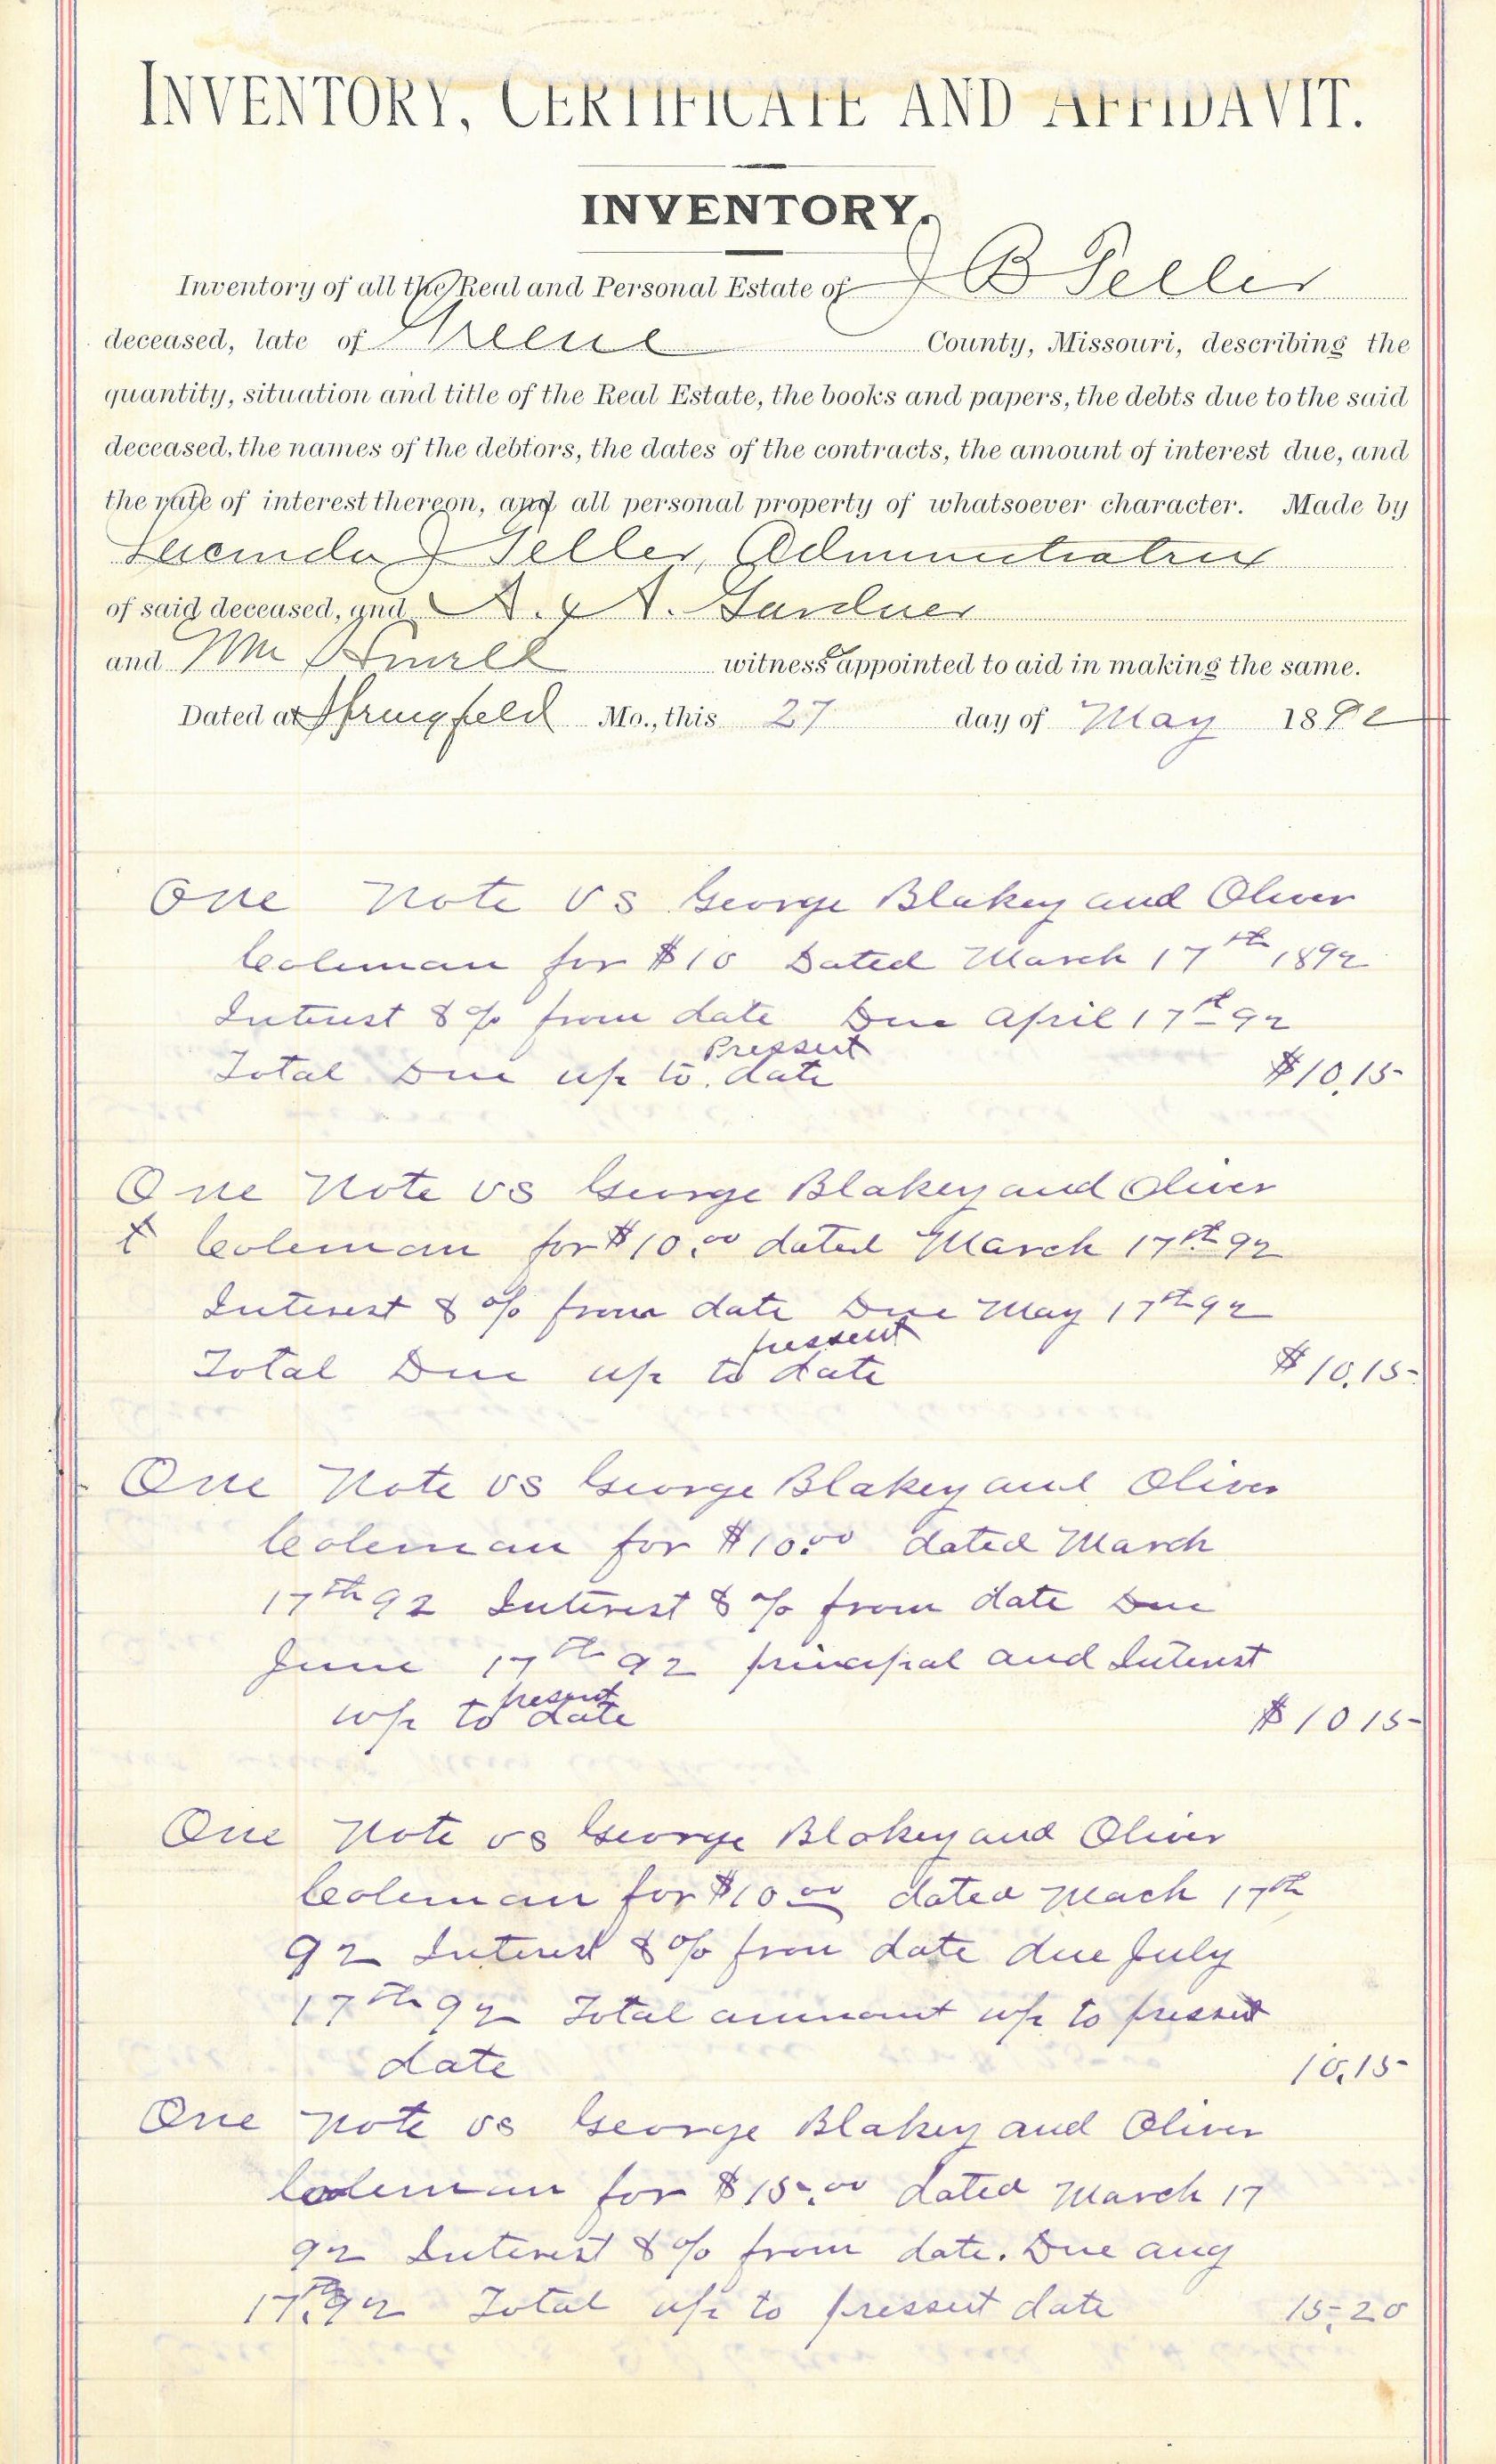 INVENTORY, CERTIFICATE AND AFFIDAVIT.
INVENTORY.
Inventory of all the Real and Personal Estate of J B Teller
deceased, late of Greene County, Missouri, describing the
quantity, situation and title of the Real Estate, the books and papers, the debts due to the said
deceased, the names of the debtors, the dates of the contracts, the amount of interest due, and
the rate of interest thereon, and all personal property of whatsoever character. Made by
Lucinda J Teller, Administratrix
of said deceased, and A. A. Gardner
and Wm witness appointed to aid in making the same.
Dated at Springfield Mo., this 27 day of May 1892
One Note vs George Blakey and Oliver
Coleman for $10 Dated March 17th 1892
Interest 8% from date Due April 17th 92
Pressent
Total Due up to date $10.15
One Note vs George Blakey and Oliver
Coleman for $10.00 dated March 17th 92
Interest 8% from date Due May 17th 92
pressent
Total Due up to date $10.15
One Note vs George Blakey and Oliver
Coleman for $10.00 dated March
17th 92 Interest 8% from date Due
June 17th 92 principal and Interest
present
up to date $10 15
One Note vs George Blakey and Oliver
Coleman for $10.00 dated Mach 17th
92 Interest 8% from date due July
17th 92 Total ammount up to pressent
date 10.15
One Note vs George Blakey and Oliver
Coleman for $15.00 dated March 17
92 Interest 8% from date. Due aug
17th 92 Total up to pressent date 15.20